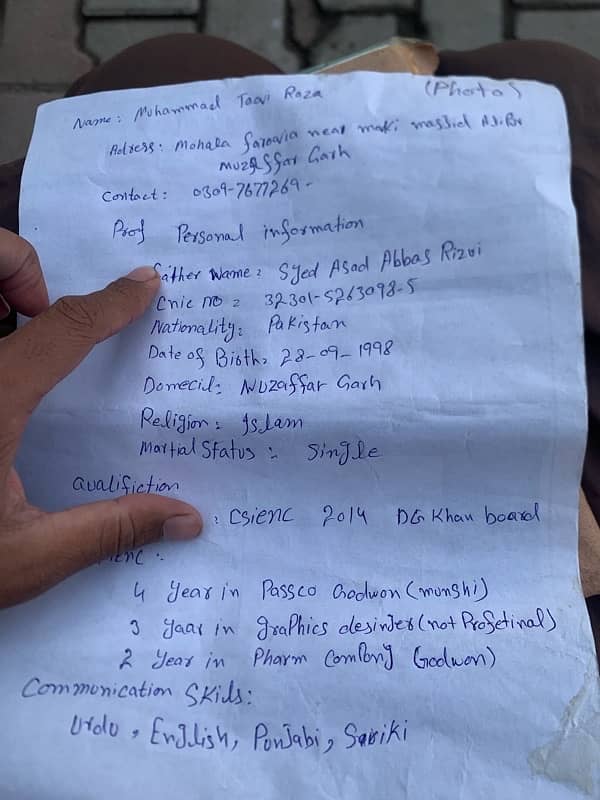 (Photo)
Name: Mohammad Taqvi Raza
Adress: Mohala farooqia near maki masjid
Muzaffar Garh
Contact: 0309-7677269-
Prof Personal information
father Name: Syed Asad Abbas Rizvi
Cnic no = 32301-5263098-5
Nationality: Pakistan
Date of Birth: 28-09-1998
Domecil: Muzaffar Garh
Religion: Islam
Martial Status: Single
Qualifiction
: Csienc 2014 DG Khan board
ienc:-
4 Year in Passco Godwon (munshi)
3 Yaar in graphics desinjer (not Profetinal)
2 Year in Pharm Compony Godwon)
Communication Skids:
Urdu, English, Punjabi, Sariki